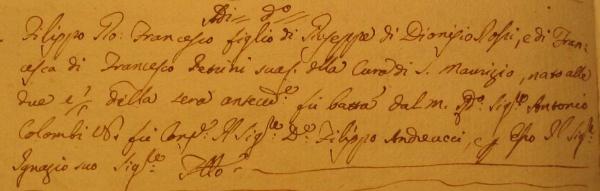 Adi do
Filippo Gio: Francesco figlio di Giuseppe di Dionisio Rossi, e di Fran=
cesca di Francesco Petrini sua C. della Cura di S. Maurizio, nato alle
due e ½ della sera anteced.e fù batta.to dal m. Rdo. Sigre. Antonio
Colombi fù Comp.e Il Sigre. Do. Filippo Andreucci, e p Esso Il Sigre.
Ignazio suo Figlo.